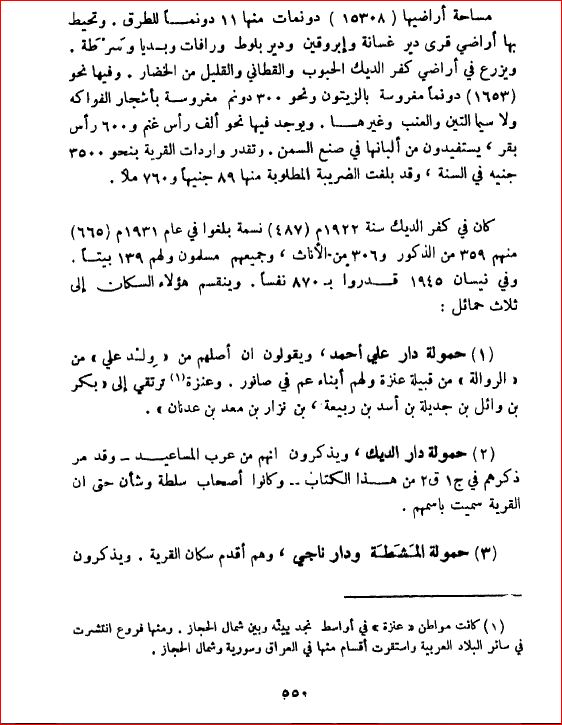 مساحة أراضيها ( ١٥٣٠٨ ) دونمات منها ١١ دونمـــاً للطرق . وتحيط
بها أراضي قرى دير غسانة وإبروقين ودير بلوط ورافات وبديا وسَرْطَة .
ويزرع في أراضي كفر الديك الحبوب والقطاني والقليل من الخضار . وفيها نحو
(١٦٥٣) دونماً مغروسة بالزيتون ونحو ٣٠٠ دونم مغروسة بأشجار الفواكه
ولا سيما التين والعنب وغيرهـــا . ويوجد فيها نحو ألف رأس غنم و٦٠٠ رأس
بقر ، يستفيدون من ألبانها في صنع السمن . وتقدر واردات القرية بنحو ٣٥٠٠
جنيه في السنة ، وقد بلغت الضريبة المطلوبة منها ٨٩ جنيهاً و٧٦٠ ملا .
كان في كفر الديك سنة ١٩٢٢م (٤٨٧) نسمة بلغوا في عام ١٩٣١م (٦٦٥)
منهم ٣٥٩ من الذكور و٣٠٦ من الأناث ، وجميعهم مسلمون ولهم ١٣٩ بيتــاً .
وفي نيسان ١٩٤٥ قــدروا بـ ٨٧٠ نفساً . وينقسم هؤلاء السكان إلى
ثلاث حمائل :
(١) حمولة دار علي أحمد ، ويقولون ان أصلهم من « وِلْد علي » من
« الروالة » من قبيلة عنزة ولهم أبناء عم في صانور . وعنزة(١) ترتقي إلى « بكر
بن وائل بن جديلة بن أسد بن ربيعة ، بن نزار بن معد بن عدنان » .
(٢) حمولة دار الديك ، ويذكرون انهم من عرب المساعيــد – وقد مر
ذكرهم في ج١ ق٢ من هــذا الكتاب – وكانوا أصحاب سلطة وشأن حتى ان
القرية سميت باسمهم .
(٣) حمولة المَشَطَة ودار ناجي ، وهم أقدم سكان القرية . ويذكرون
(١) كانت مواطن « عنزة » في أواسط نجد بينه وبين شمال الحجاز . ومنها فروع انتشرت
في سائر البلاد العربية واستقرت أقسام منها في العراق وسورية وشمال الحجاز .
٥٥٠